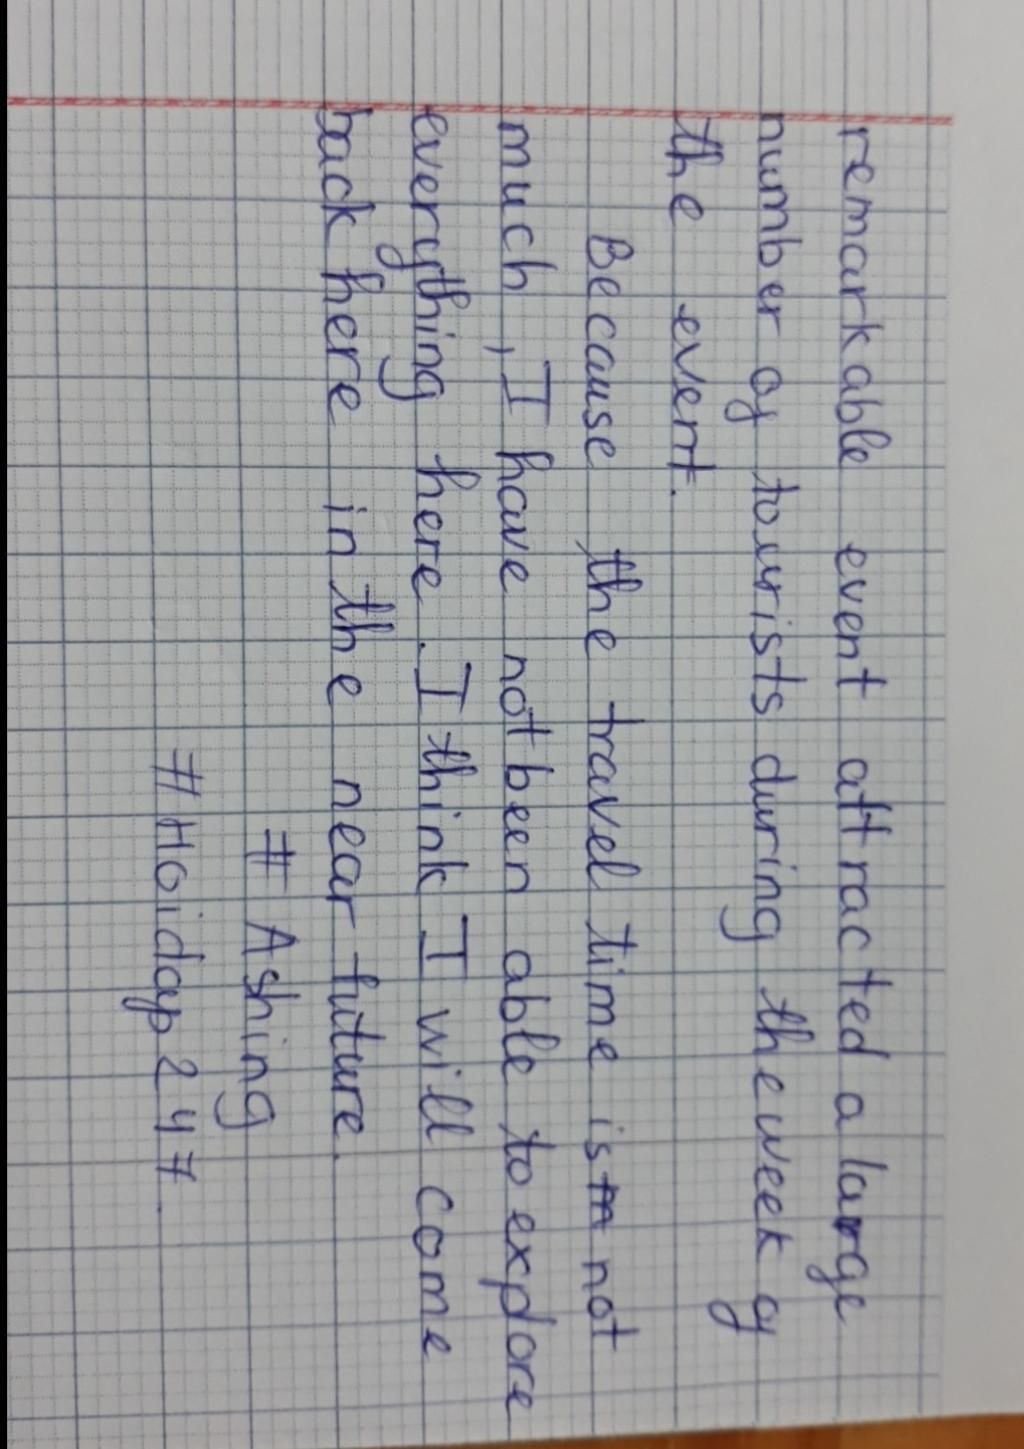 remarkable event attracted a large
number of tourists during the week of
the event.
Because the travel time is not
much, I have not been able to explore
everything here. I think I will come
back here in the near future.
# Ashing
# Hoidap247